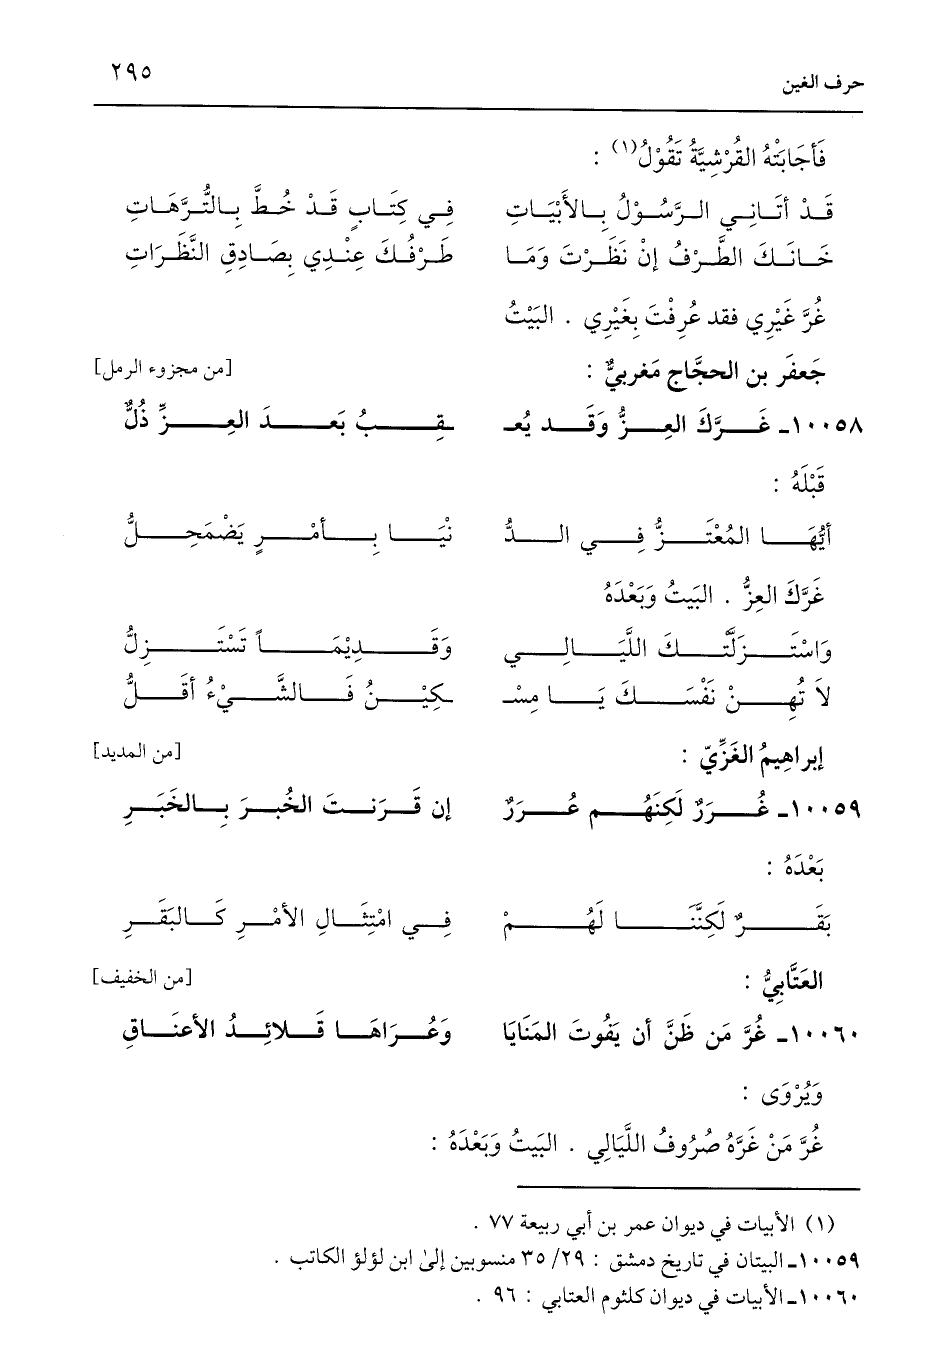 حرف الغين ٢٩٥
فَأَجَابَتْهُ القُرْشِيَّةُ تَقُوْلُ(١) :
قَدْ أتَانِي الرَّسُوْلُ بِالأَبْيَاتِ فِي كِتَابٍ قَدْ خُطَّ بِالتُّرَّهَاتِ
خَانَكَ الطَّرْفُ إنْ نَظَرْتَ وَمَا طَرْفُكَ عِنْدِي بِصَادِقِ النَّظَرَاتِ
غُرَّ غَيْرِي فقد عُرِفْتَ بِغَيْرِي . البَيْتُ
جَعفَر بن الحجَّاج مَغربيٌّ : [من مجزوء الرمل]
١٠٠٥٨ـ غَرَّكَ العِزُّ وَقَد يُعـ ـقِبُ بَعدَ العِزِّ ذُلُّ
قَبْلَهُ :
أيُّهَا المُعْتَزُّ فِي الدُّ نْيَا بِأمْرٍ يَضْمَحِلُّ
غَرَّكَ العِزُّ . البَيتُ وَبَعْدَهُ
وَاسْتَزَلَّتكَ اللَّيَالِي وَقَدِيْمَاً تَسْتَزِلُّ
لاَ تُهِنْ نَفْسَكَ يَا مِسْـ ـكِيْنُ فَالشَّيْءُ أقَلُّ
إبراهِيمُ الغَزِّيّ : [من المديد]
١٠٠٥٩ـ غُرَرٌ لَكِنَهُم عُرَرٌ إن قَرَنتَ الخُبرَ بِالخَبَرِ
بَعْدَهُ :
بَقَرٌ لَكِنَّنَا لَهُمْ فِي امْتِثَالِ الأمْرِ كَالبَقَرِ
العَتَّابِيُّ : [من الخفيف]
١٠٠٦٠ـ غُرَّ مَن ظَنَّ أن يَفُوتَ المَنَايَا وَعُرَاهَا قَلائِدُ الأعنَاقِ
وَيُرْوَى :
غُرَّ مَنْ غَرَّهُ صُرُوفُ اللَّيَالِي . البَيتُ وَبَعْدَهُ :
(١) الأبيات في ديوان عمر بن أبي ربيعة ٧٧ .
١٠٠٥٩ـ البيتان في تاريخ دمشق : ٢٩/ ٣٥ منسوبين إلىٰ ابن لؤلؤ الكاتب .
١٠٠٦٠ـ الأبيات في ديوان كلثوم العتابي : ٩٦ .